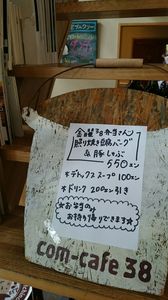 金曜78弁当さん
照り焼き豆腐バーグ
&豚しゃぶ
550エン
*デトックススープ100エン
*ドリンク200エン引き
☆お弁当のみ
お持ち帰りできます☆
com-cafe 38